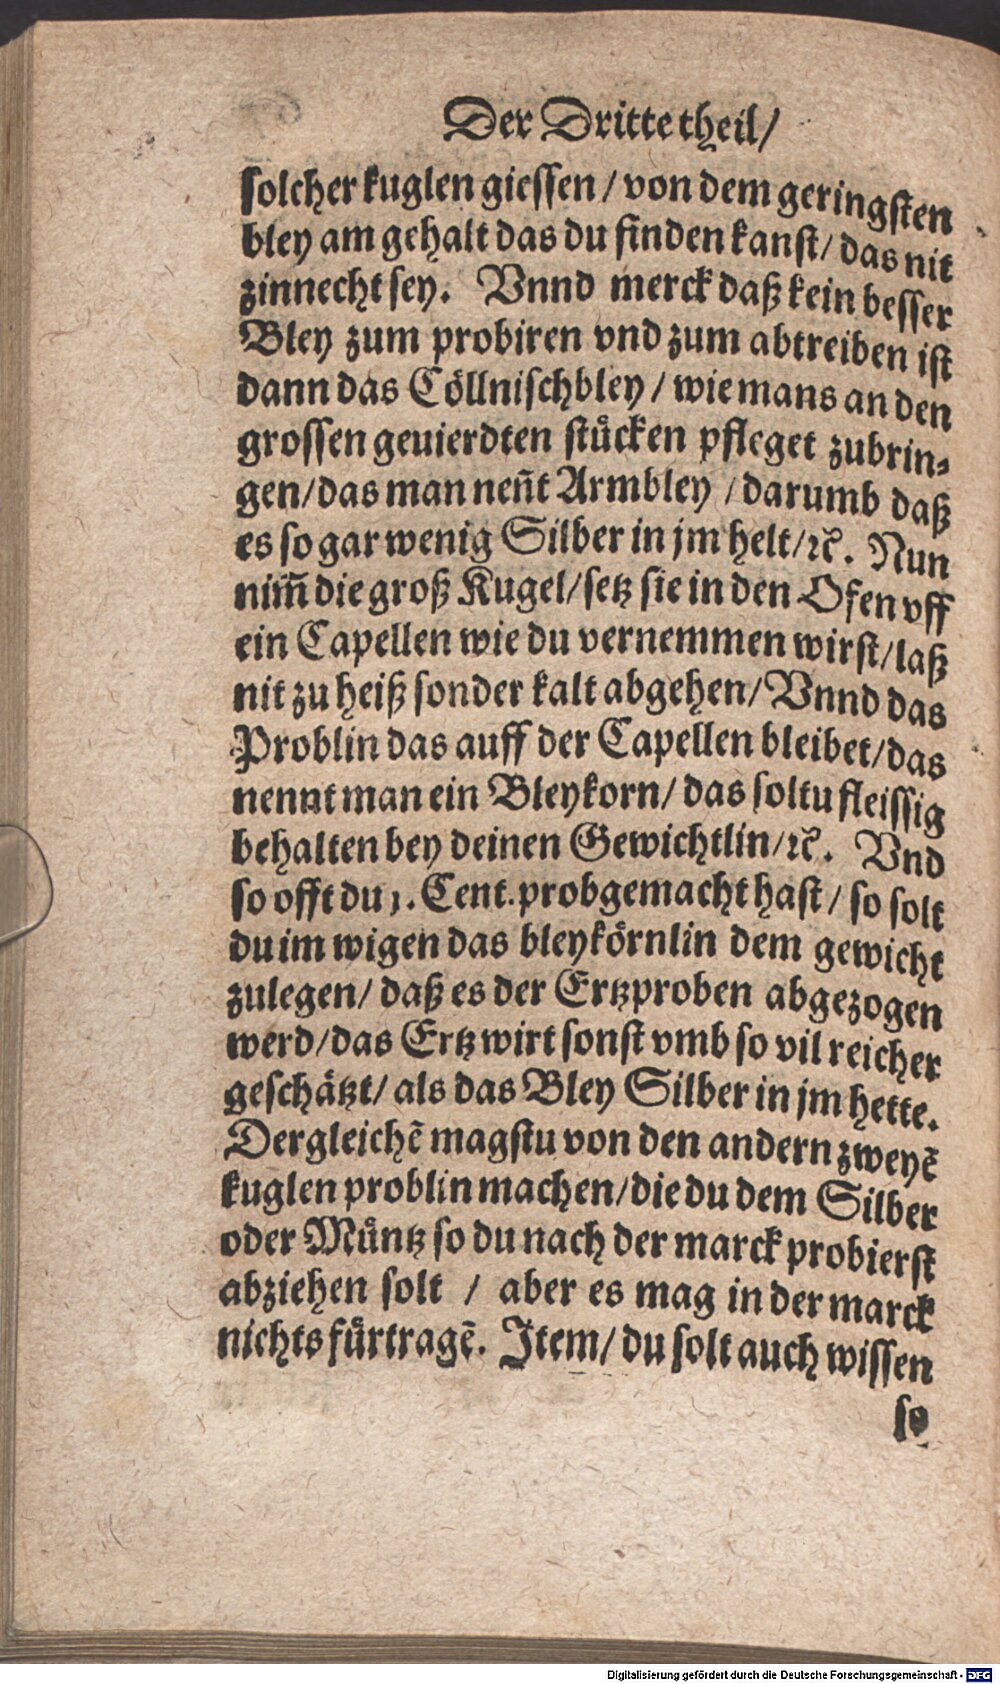 Der Dritte theil/
solcher kuglen giessen / von dem geringsten
bley am gehalt das du finden kanst/ das nit
zinnecht sey. Vnnd merck daß kein besser
Bley zum probiren vnd zum abtreiben ist
dann das Cöllnischbley / wie mans an den
grossen geuierdten stuͤcken pfleget zubrin⸗
gen/das man nen̄t Armbley / darumb daß
es so gar wenig Silber in jm helt/ꝛc̄. Nun
nim̄ die groß Kugel/setz sie in den Ofen vff
ein Capellen wie du vernemmen wirst/laß
nit zu heiß sonder kalt abgehen/ Vnnd das
Problin das auff der Capellen bleibet/das
nennt man ein Bleykorn/ das soltu fleissig
behalten bey deinen Gewichtlin/ꝛc̄. Vnd
so offt du 1. Cent. probgemacht hast/ so solt
du im wigen das bleykörnlin dem gewicht
zulegen/ daß es der Ertzproben abgezogen
werd/das Ertz wirt sonst vmb so vil reicher
geschaͤtzt/ als das Bley Silber in jm hette.
Dergleichē magstu von den andern zweyē
kuglen problin machen/die du dem Silber
oder Muͤntz so du nach der marck probierst
abziehen solt / aber es mag in der marck
nichts fuͤrtragē. Item/ du solt auch wissen
so
Digitalisierung gefördert durch die Deutsche Forschungsgemeinschaft - DFG